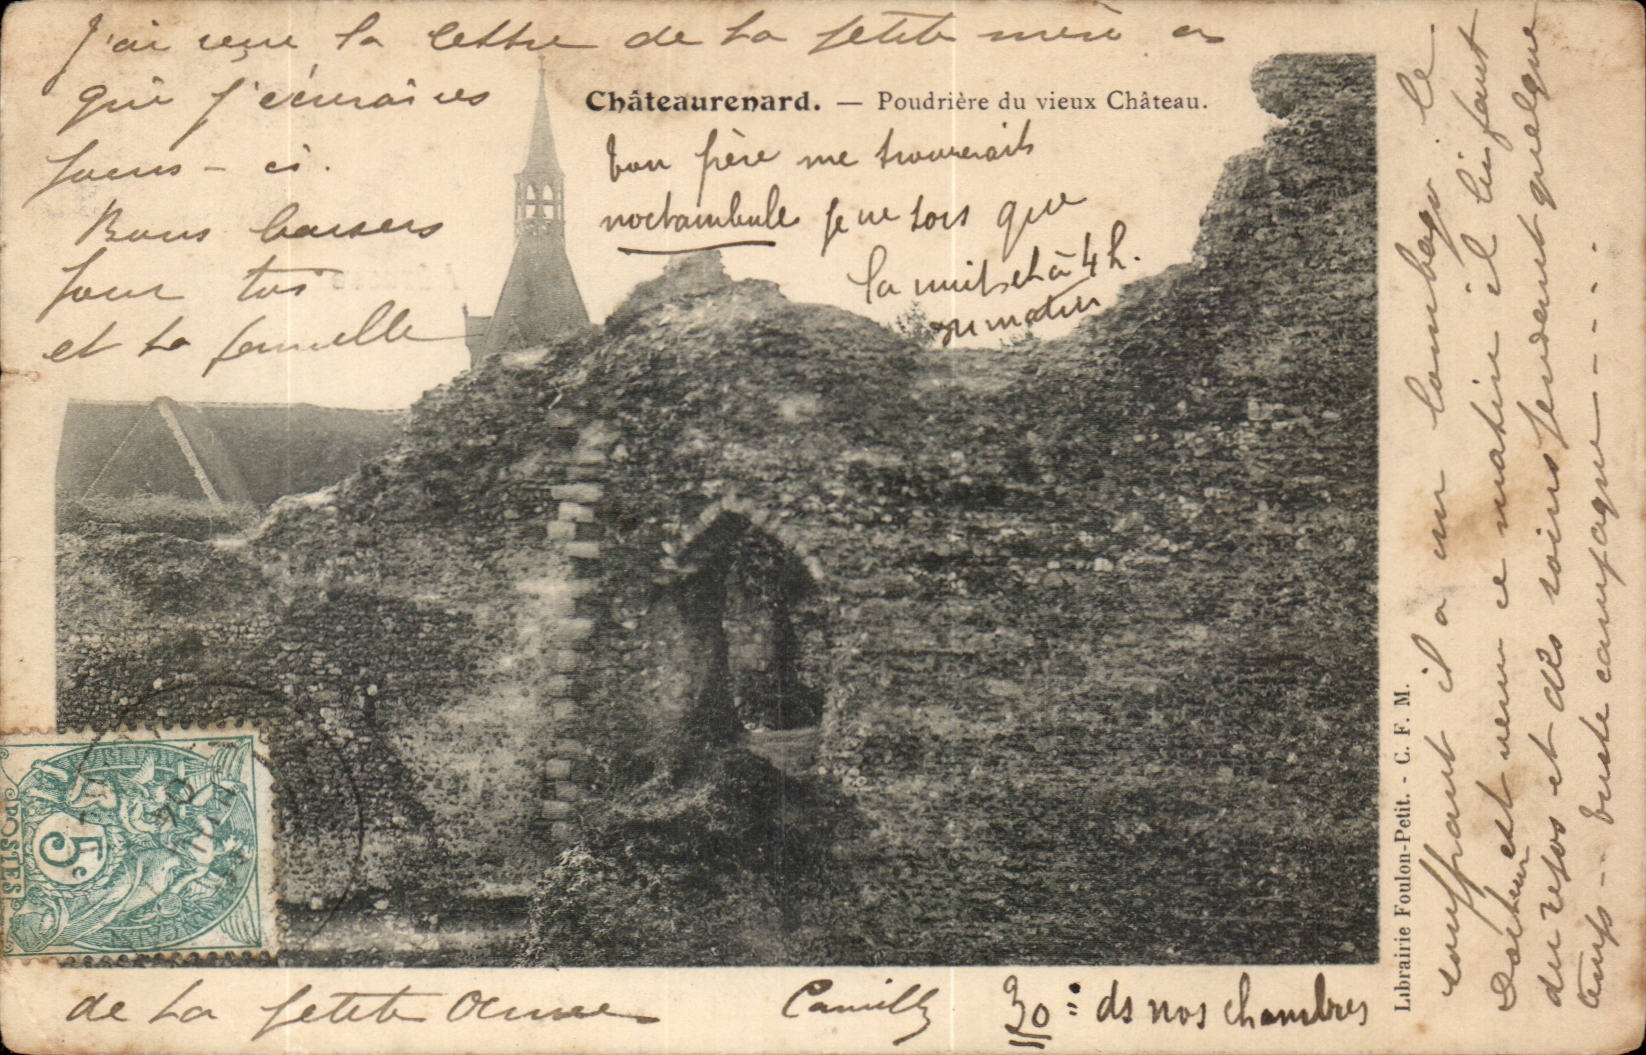 J'ai reçu la lettre de ta petite mère
que j'écrirai ces
jours-ci.
Bons baisers
pour toi
et ta famille
de ta petite amie
Camille
Châteaurenard. — Poudrière du vieux Château.
ton frère me trouverait
noctambule je ne sors que
la nuit et à 4 h.
du matin
30°: ds nos chambres
souffrant il a un lombago le
Docteur est venu ce matin il lui faut
du repos et des soins pendant quelque
temps -- triste campagne - - - - -
Librairie Foulon-Petit. - C. F. M.
5c
POSTES